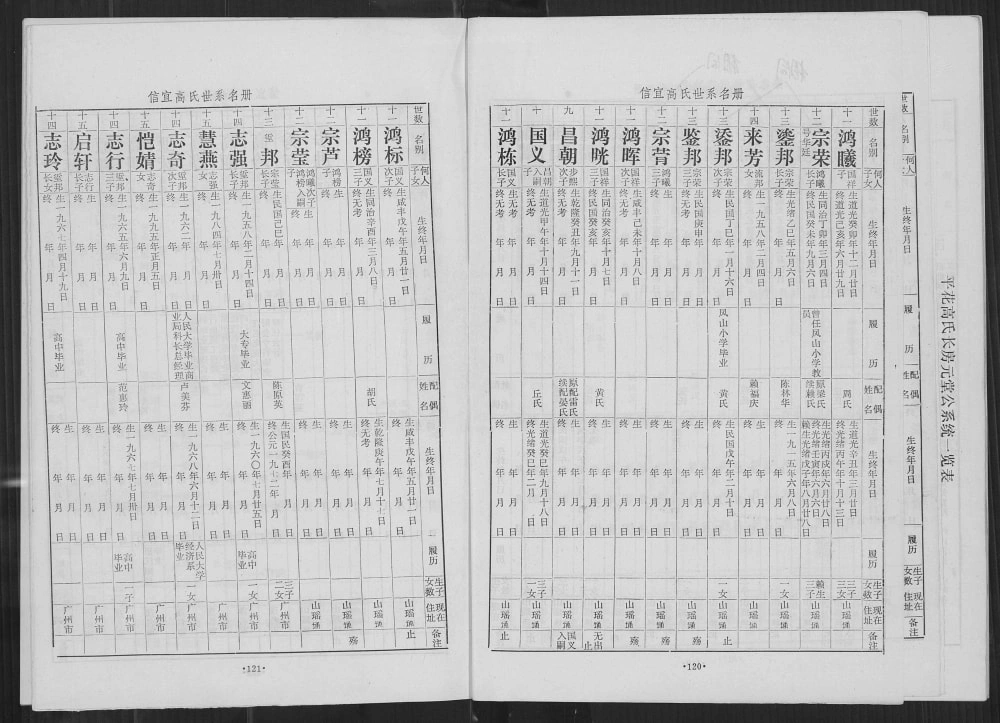 平花高氏长房元堂公系统一览表
信宜高氏世系名册
世数
名别
何人子女
生终年月日
履历
配偶姓名
生终年月日
履历
生子女数
现在住址
备注
十二
鸿曦
国祥子
生道光癸卯年十二月廿日
终道光己亥年六月廿九日
周氏
生道光辛丑年三月廿日
终光绪丙午年十月十三日
三子三女
山瑶通
宗荣
号华廷
鸿曦长子
生同治丁卯年三月四日
终民国癸未年九月六日
曾任凤山小学教员
原梁氏
续赖氏
生光绪丙戌年六月廿八日
终光绪壬寅年六月六日
赖生光绪戊子年八月廿八日
赖生三子
山瑶通
十三
鎏邦
宗荣长子
生光绪乙巳年五月六日
终 年 月 日
陈林华
生一九一五年六月八日
终 年 月 日
一女
山瑶通
十四
来芳
鎏邦女
生一九五八年二月四日
终 年 月 日
赖福庆
生 年 月 日
终
山瑶通
十三
鋈邦
宗荣次子
生民国丁巳年一月十六日
终 年 月 日
凤山小学毕业
黄氏
生民国戊午年二月十日
终 年 月 日
一女
山瑶通
止
十三
鉴邦
宗荣三子
生民国庚申年 月 日
终无考
山瑶通
殇
宗菅
鸿曦三子
生 年 月 日
终
山瑶通
鸿晖
国祥次子
生咸丰己未年十月八日
终 年 月 日
山瑶通
殇
鸿晄
国祥三子
生同治癸亥年十月七日
终民国癸亥年
黄氏
山瑶通
无出止
九
昌朝
步熙次子
生乾隆癸丑年九月十一日
终 年 月 日
原配雷氏
续配晏氏
山瑶通
国义入嗣
十
国义
昌朝入嗣子
生道光甲午年十月十四日
终 年 月 日
丘氏
生道光癸巳年九月十八日
终光绪癸巳年
三子一女
山瑶通
鸿栋
国义长子
生无考
终无考
山瑶通
止
·120·
信宜高氏世系名册
世数
名别
何人子女
生终年月日
履历
配偶姓名
生终年月日
履历
生子女数
现在住址
备注
鸿标
国义次子
生咸丰戊午年五月廿一日
终 年 月 日
生咸丰戊午年五月廿一日
终 年 月 日
山瑶通
止
鸿榜
国义三子
生同治辛酉年三月八日
终无考
胡氏
生乾隆庚午年七月十七日
终无考
山瑶通
宗芦
鸿榜子
生 年 月 日
终
山瑶通
殇
宗莹
鸿曦次子
鸿榜入嗣子
生 年 月 日
终
山瑶通
十三
邦
宗莹长子
生民国己巳年 月 日
终
陈原英
生国民癸酉年 月 日
终公元一九七二年
三子二女
广州市
十四
志强
长子
生一九五八年二月十四日
终 年 月 日
大专毕业
文惠丽
生一九六〇年七月廿五日
终 年 月 日
高中毕业
一女
广州市
十五
慧燕
志强女
生一九八四年七月卅日
终 年 月 日
广州市
十四
志奇
次子
生一九六二年 月 日
终
人民大学毕业商业局科长总经理
卢美芬
生一九六八年六月十二日
终 年 月 日
人民大学经济系毕业
一女
广州市
十五
恺婧
志奇女
生一九九五年正月五日
终 年 月 日
广州市
十四
志行
三子
生一九六五年六月九日
终 年 月 日
高中毕业
范惠玲
生一九六七年七月卅日
终 年 月 日
高中毕业
一子
广州市
十五
启轩
志行长子
生 年 月 日
终
广州市
十四
志玲
长女
生一九六七年四月十九日
终 年 月 日
高中毕业
生 年 月 日
终
广州市
·121·